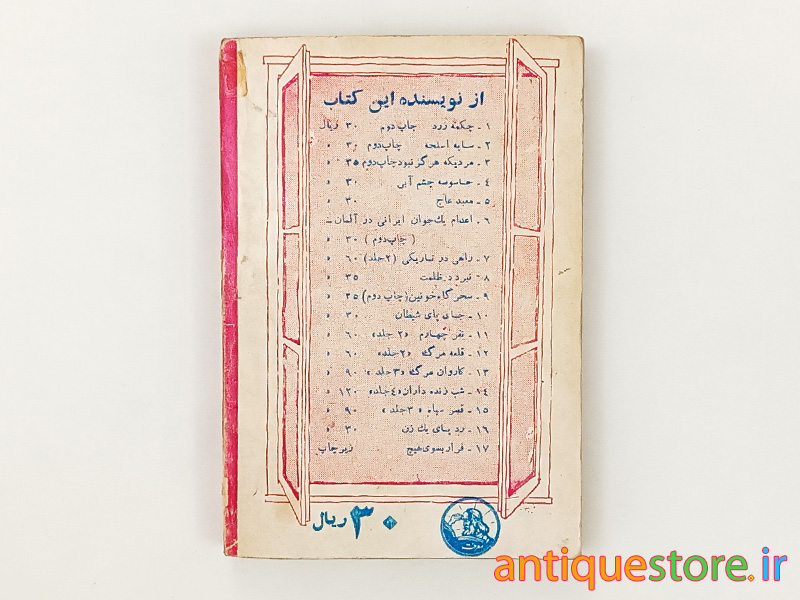 از نویسنده این کتاب
۱ - چکمه زرد چاپ دوم ۳۰ ریال
۲ - سایه اسلحه چاپ دوم ۳۰ »
۳ - مردیکه هرگز نبود چاپ دوم ۳۵ »
۴ - جاسوسه چشم آبی ۳۰ »
۵ - معبد عاج ۳۰ »
۶ - اعدام یك جوان ایرانی در آلمان -
( چاپ دوم ) ۳۰ »
۷ - راهی در تاریکی (۲ جلد) ۶۰ »
۸ - نبرد در ظلمت ۳۵ »
۹ - سحرگاه خونین (چاپ دوم) ۲۵ »
۱۰ - جای پای شیطان ۳۰ »
۱۱ - نفر چهارم «۲ جلد» ۶۰ »
۱۲ - قلعه مرگ «۲ جلد» ۶۰ »
۱۳ - کاروان مرگ «۳ جلد» ۹۰ »
۱۴ - شب زنده داران «۴ جلد» ۱۲۰ »
۱۵ - قصر سیاه «۳ جلد» ۹۰ »
۱۶ - رد پای یك زن ۳۰ »
۱۷ - فرار بسوی هیچ زیر چاپ
۳۰ ریال
antiquestore.ir